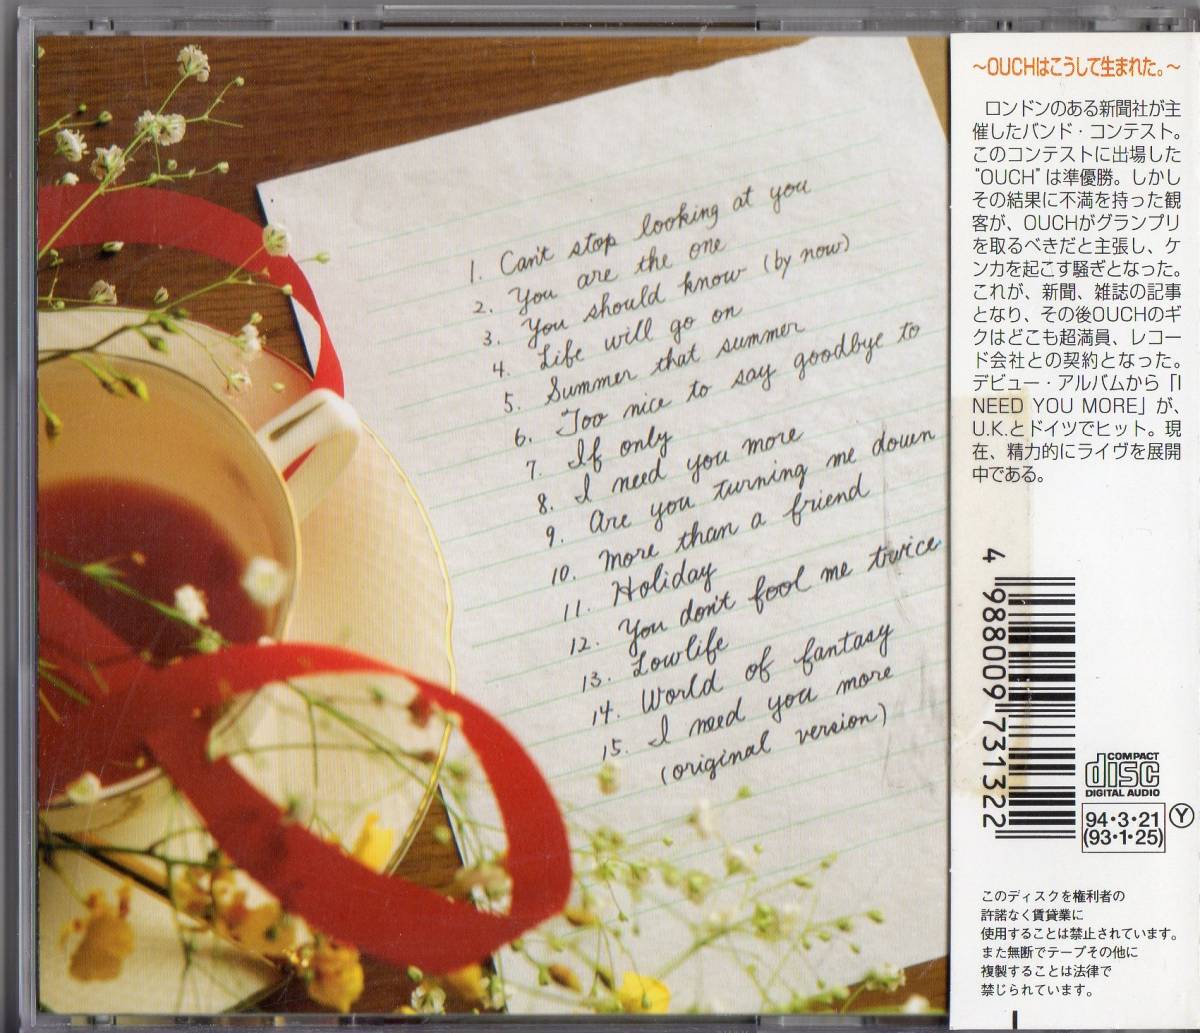 1. Can't stop looking at you
2. You are the one
3. You should know (by now)
4. Life will go on
5. Summer that summer
6. Too nice to say goodbye to
7. If only
8. I need you more
9. Are you turning me down
10. More than a friend
11. Holiday
12. You don't fool me twice
13. Lowlife
14. World of fantasy
15. I need you more
(original version)
～OUCHはこうして生まれた。～
ロンドンのある新聞社が主
催したバンド・コンテスト。
このコンテストに出場した
"OUCH"は準優勝。しかし
その結果に不満を持った観
客が、OUCHがグランプリ
を取るべきだと主張し、ケ
ンカを起こす騒ぎとなった。
これが、新聞、雑誌の記事
となり、その後OUCHのギ
グはどこも超満員、レコー
ド会社との契約となった。
デビュー・アルバムから「I
NEED YOU MORE」が、
U.K.とドイツでヒット。現
在、精力的にライヴを展開
中である。
4 988009 731322
COMPACT
disc
DIGITAL AUDIO
94・3・21
(93・1・25)
Y
このディスクを権利者の
許諾なく賃貸業に
使用することは禁止されています。
また無断でテープその他に
複製することは法律で
禁じられています。